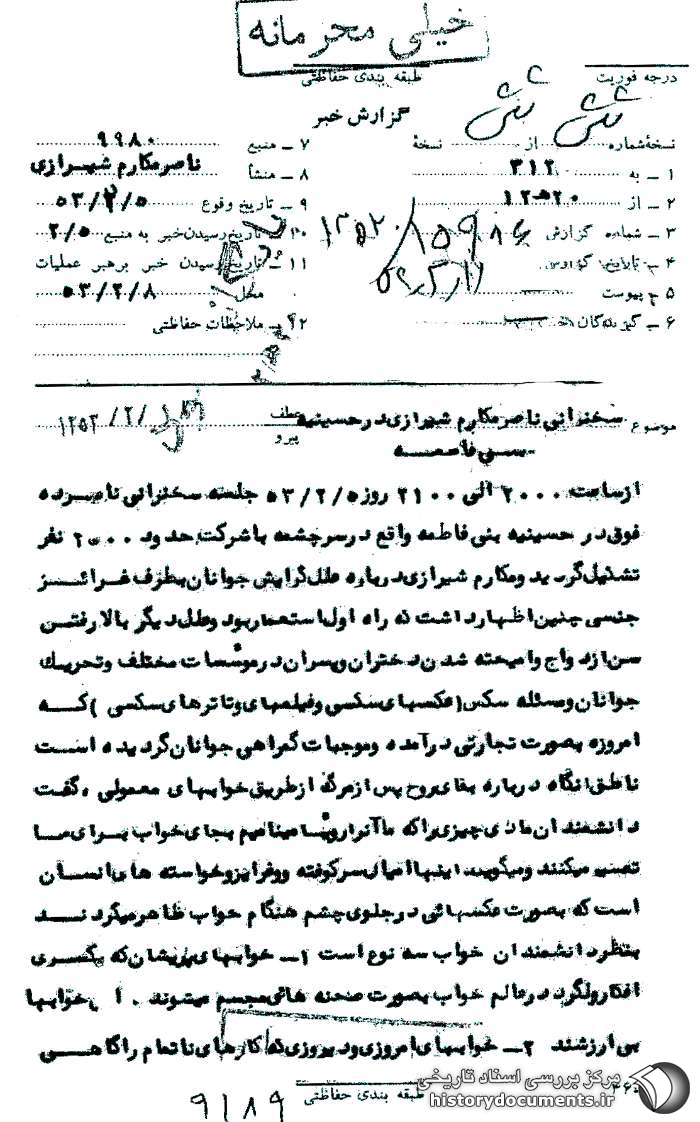 خیلی محرمانه
درجه فوریت
طبقه بندی حفاظتی
گزارش خبر
نسخه شماره از نسخه
۱ ـ به ۳۱۲
۲ ـ از ۱۲ه۲۰
۳ ـ شماره گزارش
۴ ـ تاریخ گزارش
۵ ـ پیوست
۶ ـ گیرندگان
۷ ـ منبع ۹۹۸۰
۸ ـ منشأ ناصر مکارم شیرازی
۹ ـ تاریخ وقوع ۵۳/۲/۵
۱۰ ـ تاریخ رسیدن خبر به منبع ۲/۵
۱۱ ـ تاریخ رسیدن خبر برهبر عملیات
محل ۵۳/۲/۸
۱۲ ـ ملاحظات حفاظتی
موضوع سخنرانی ناصر مکارم شیرازی در حسینیه
بنی فاطمه
عطف
پیرو
ازساعت ۲۰۰۰ الی ۲۱۰۰ روز ۵۳/۲/۵ جلسه سخنرانی نامبرده
فوق در حسینیه بنی فاطمه واقع در سرچشمه باشرکت حدود ۲۰۰۰ نفر
تشکیل گردید و مکارم شیرازی درباره علل گرایش جوانان بطرف غرائز
جنسی چنین اظهار داشت که راه اول استعمار بود و علل دیگر بالا رفتن
سن ازدواج و امیخته شدن دختران و پسران در موسسات مختلف و تحریک
جوانان و مسئله سکس (عکسهای سکسی و فیلمهای و تاترهای سکسی ) که
امروزه بصورت تجارتی درآمده و موجبات گمراهی جوانان گردیده است
ناطق انگاه درباره بقای روح پس از مرگ از طریق خوابهای معمولی ، گفت
دانشمندان مادی چیزی را که ما آنرا رویا مینامیم بجای خواب برای ما
تفسیر میکنند و میگویند اینها امیال سرکوفته و غرایز و خواسته های انسان
است که بصورت عکسهائی در جلوی چشم هنگام خواب ظاهر میگردند
بنظر دانشمندان خواب سه نوع است ۱ـ خوابهای پریشان که یکسری
افکار ولگرد در عالم خواب بصورت صحنه هائی مجسم میشوند . این خوابها
بی ارزشند ۲ـ خوابهای امروزی و دیروزی که کارهای ناتمام را گاهی
طبقه بندی حفاظتی
۹۱۸۹
مرکز بررسی اسناد تاریخی
historydocuments.ir